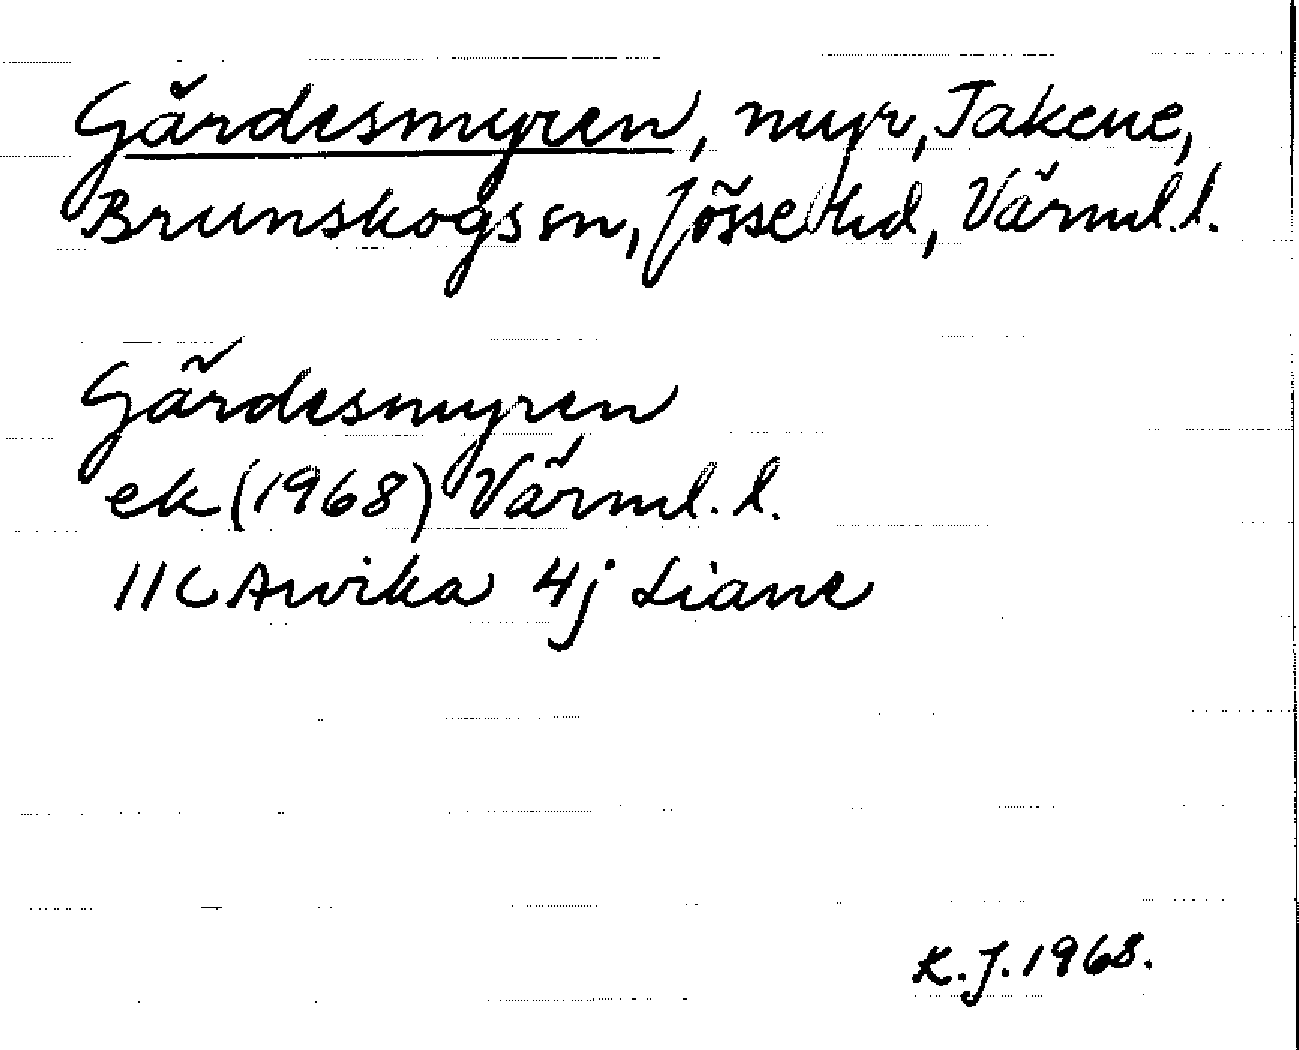 Gärdesmyren, myr, Takene,
Brunskogs sn, Jösse hd, Värml.l.
Gärdesmyren
ek (1968) Värml. l.
11C Arvika 4j Liane
K.J. 1968.